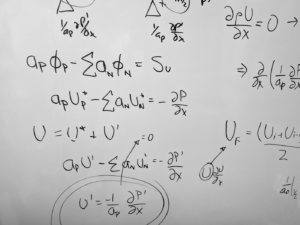 1/ap ∂P'/∂x
1/ap ∂P'/∂x
∂ρU/∂x = 0 →
apΦp - ΣaNΦN = Su
⇒ ∂/∂x (1/ap ∂P
apU* - ΣaNUN* = - ∂P/∂x
U = U* + U'
UF = (Ui + Ui
2
= 0
apU' - ΣaNUN' = - ∂P'/∂x
U' = -1/ap ∂P'/∂x